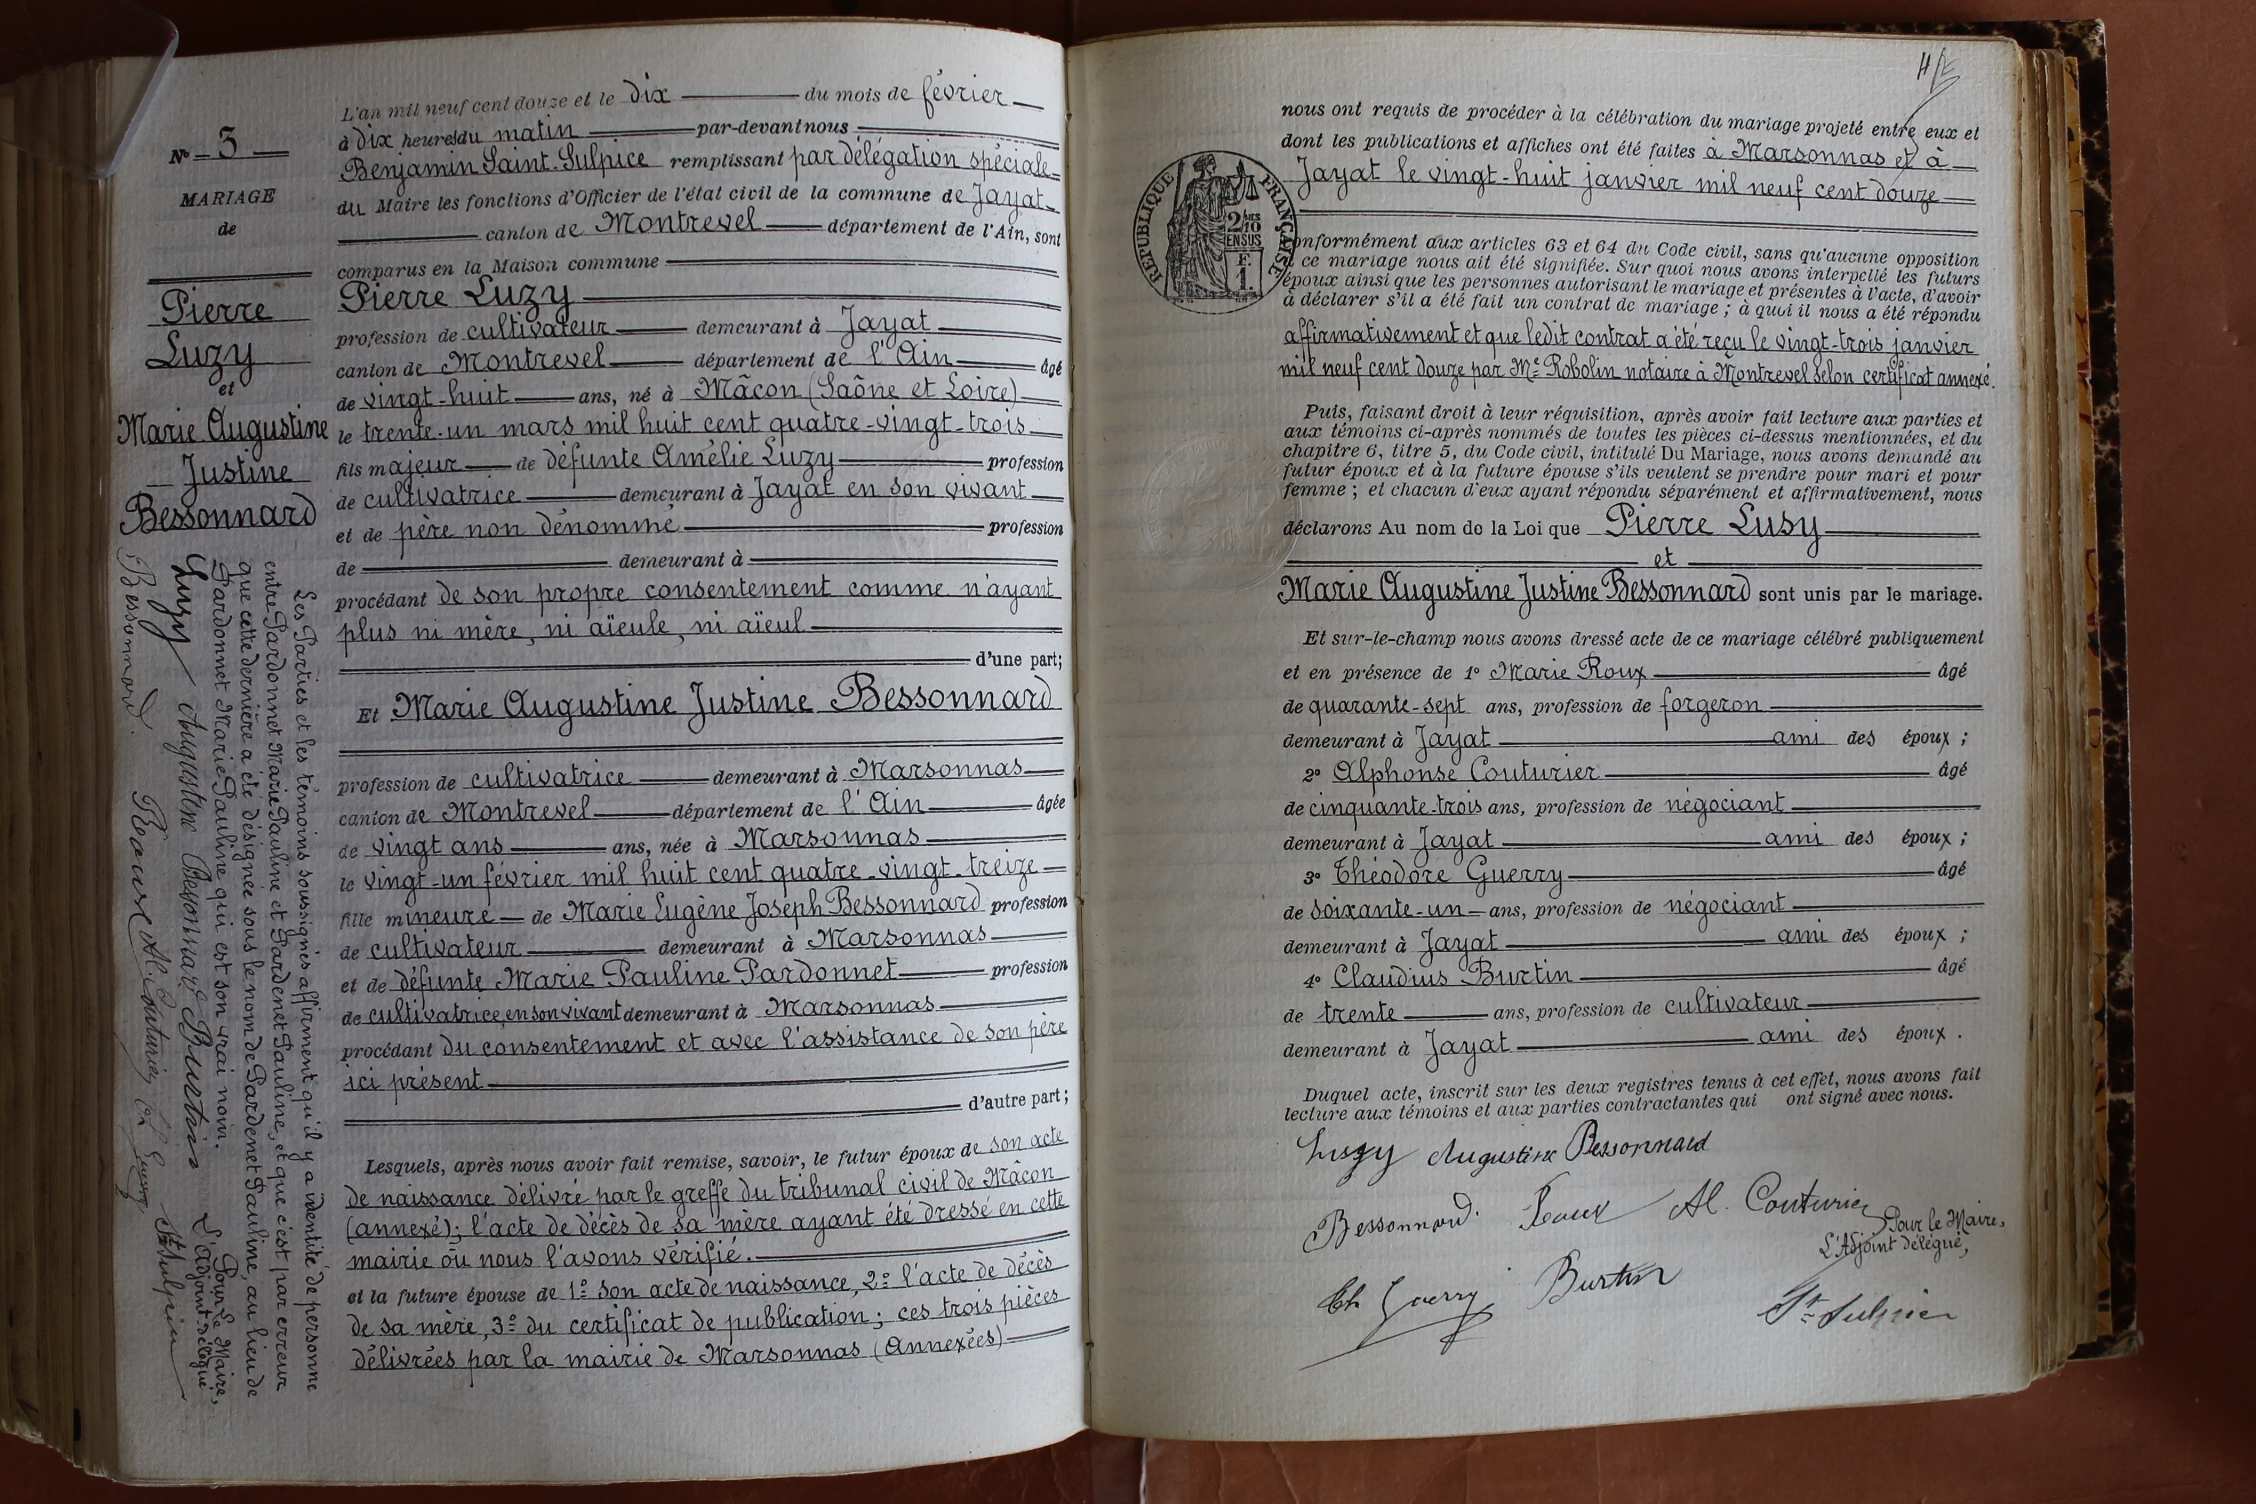 N° 3
MARIAGE
de
Pierre
Luzy
et
Marie Augustine
Justine
Bessonnard
Les Parties et les témoins soussignés affirment qu'il y a identité de personne
entre Pardonnet Marie Pauline et Pardenet Pauline, et que c'est par erreur
que cette dernière a été désignée sous le nom de Pardenet Pauline, au lieu de
Pardonnet Marie Pauline qui est son vrai nom.
Pour le Maire,
L'adjoint délégué
Luzy Augustine Bessonnard Burtin
Bessonnard. Reaux Al. Couturier Th Guerry St Sulpice
L'an mil neuf cent douze et le dix du mois de février
à dix heures du matin par-devant nous
Benjamin Saint-Sulpice remplissant par délégation spéciale
du Maire les fonctions d'Officier de l'état civil de la commune de Jayat
canton de Montrevel département de l'Ain, sont
comparus en la Maison commune
Pierre Luzy
profession de cultivateur demeurant à Jayat
canton de Montrevel département de l'Ain âgé
de vingt-huit ans, né à Mâcon (Saône et Loire)
le trente-un mars mil huit cent quatre-vingt-trois
fils majeur de défunte Amélie Luzy profession
de cultivatrice demeurant à Jayat en son vivant
et de père non dénommé profession
de demeurant à
procédant de son propre consentement comme n'ayant
plus ni mère, ni aïeule, ni aïeul
d'une part;
Et Marie Augustine Justine Bessonnard
profession de cultivatrice demeurant à Marsonnas
canton de Montrevel département de l'Ain âgée
de vingt ans ans, née à Marsonnas
le vingt-un février mil huit cent quatre-vingt-treize
fille mineure de Marie Eugène Joseph Bessonnard profession
de cultivateur demeurant à Marsonnas
et de défunte Marie Pauline Pardonnet profession
de cultivatrice, en son vivant demeurant à Marsonnas
procédant du consentement et avec l'assistance de son père
ici présent
d'autre part;
Lesquels, après nous avoir fait remise, savoir, le futur époux de son acte
de naissance délivré par le greffe du tribunal civil de Mâcon
(annexé); l'acte de décès de sa mère ayant été dressé en cette
mairie où nous l'avons vérifié.
et la future épouse de 1° son acte de naissance, 2° l'acte de décès
de sa mère, 3° du certificat de publication; ces trois pièces
délivrées par la mairie de Marsonnas (Annexées)
nous ont requis de procéder à la célébration du mariage projeté entre eux et
dont les publications et affiches ont été faites à Marsonnas et à
Jayat le vingt-huit janvier mil neuf cent douze
RÉPUBLIQUE FRANÇAISE
2/10 EN SUS
F. 1.
Conformément aux articles 63 et 64 du Code civil, sans qu'aucune opposition
à ce mariage nous ait été signifiée. Sur quoi nous avons interpellé les futurs
époux ainsi que les personnes autorisant le mariage et présentes à l'acte, d'avoir
à déclarer s'il a été fait un contrat de mariage ; à quoi il nous a été répondu
affirmativement et que ledit contrat a été reçu le vingt-trois janvier
mil neuf cent douze par Me Robolin notaire à Montrevel selon certificat annexé.
Puis, faisant droit à leur réquisition, après avoir fait lecture aux parties et
aux témoins ci-après nommés de toutes les pièces ci-dessus mentionnées, et du
chapitre 6, titre 5, du Code civil, intitulé Du Mariage, nous avons demandé au
futur époux et à la future épouse s'ils veulent se prendre pour mari et pour
femme ; et chacun d'eux ayant répondu séparément et affirmativement, nous
déclarons Au nom de la Loi que Pierre Lusy
et
Marie Augustine Justine Bessonnard sont unis par le mariage.
Et sur-le-champ nous avons dressé acte de ce mariage célébré publiquement
et en présence de 1° Marie Roux âgé
de quarante-sept ans, profession de forgeron
demeurant à Jayat ami des époux ;
2° Alphonse Couturier âgé
de cinquante-trois ans, profession de négociant
demeurant à Jayat ami des époux ;
3° Théodore Guerry âgé
de soixante-un ans, profession de négociant
demeurant à Jayat ami des époux ;
4° Claudius Burtin âgé
de trente ans, profession de cultivateur
demeurant à Jayat ami des époux .
Duquel acte, inscrit sur les deux registres tenus à cet effet, nous avons fait
lecture aux témoins et aux parties contractantes qui ont signé avec nous.
Luzy Augustine Bessonnard
Bessonnard. Roux Al. Couturier
Pour le Maire,
L'Adjoint délégué,
Th Guerry Burtin St Sulpice